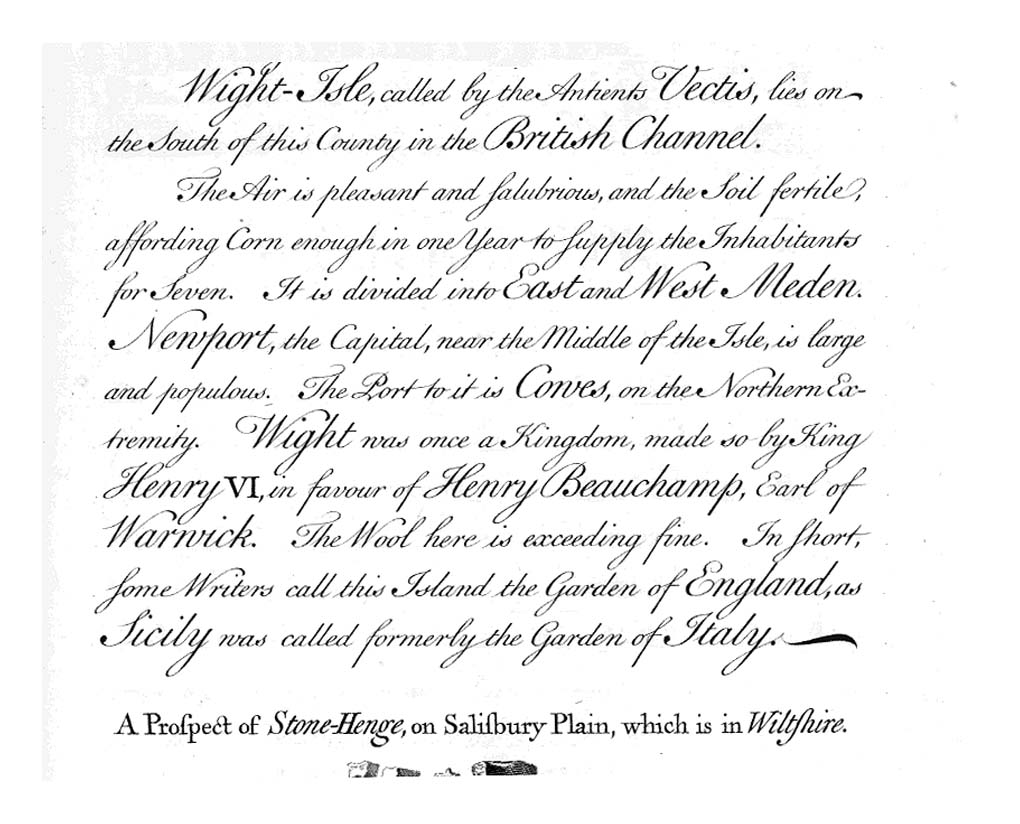 Wight-Isle, called by the Antients Vectis, lies on
the South of this County in the British Channel.
The Air is pleasant and ſalubrious, and the Soil fertile,
affording Corn enough in one Year to ſupply the Inhabitants
for Seven. It is divided into East and West Meden.
Newport, the Capital, near the Middle of the Isle, is large
and populous. The Port to it is Cowes, on the Northern Ex-
tremity. Wight was once a Kingdom, made so by King
Henry VI, in favour of Henry Beauchamp, Earl of
Warwick. The Wool here is exceeding fine. In ſhort,
ſome Writers call this Island the Garden of England, as
Sicily was called formerly the Garden of Italy.
A Proſpect of Stone-Henge, on Saliſbury Plain, which is in Wiltſhire.